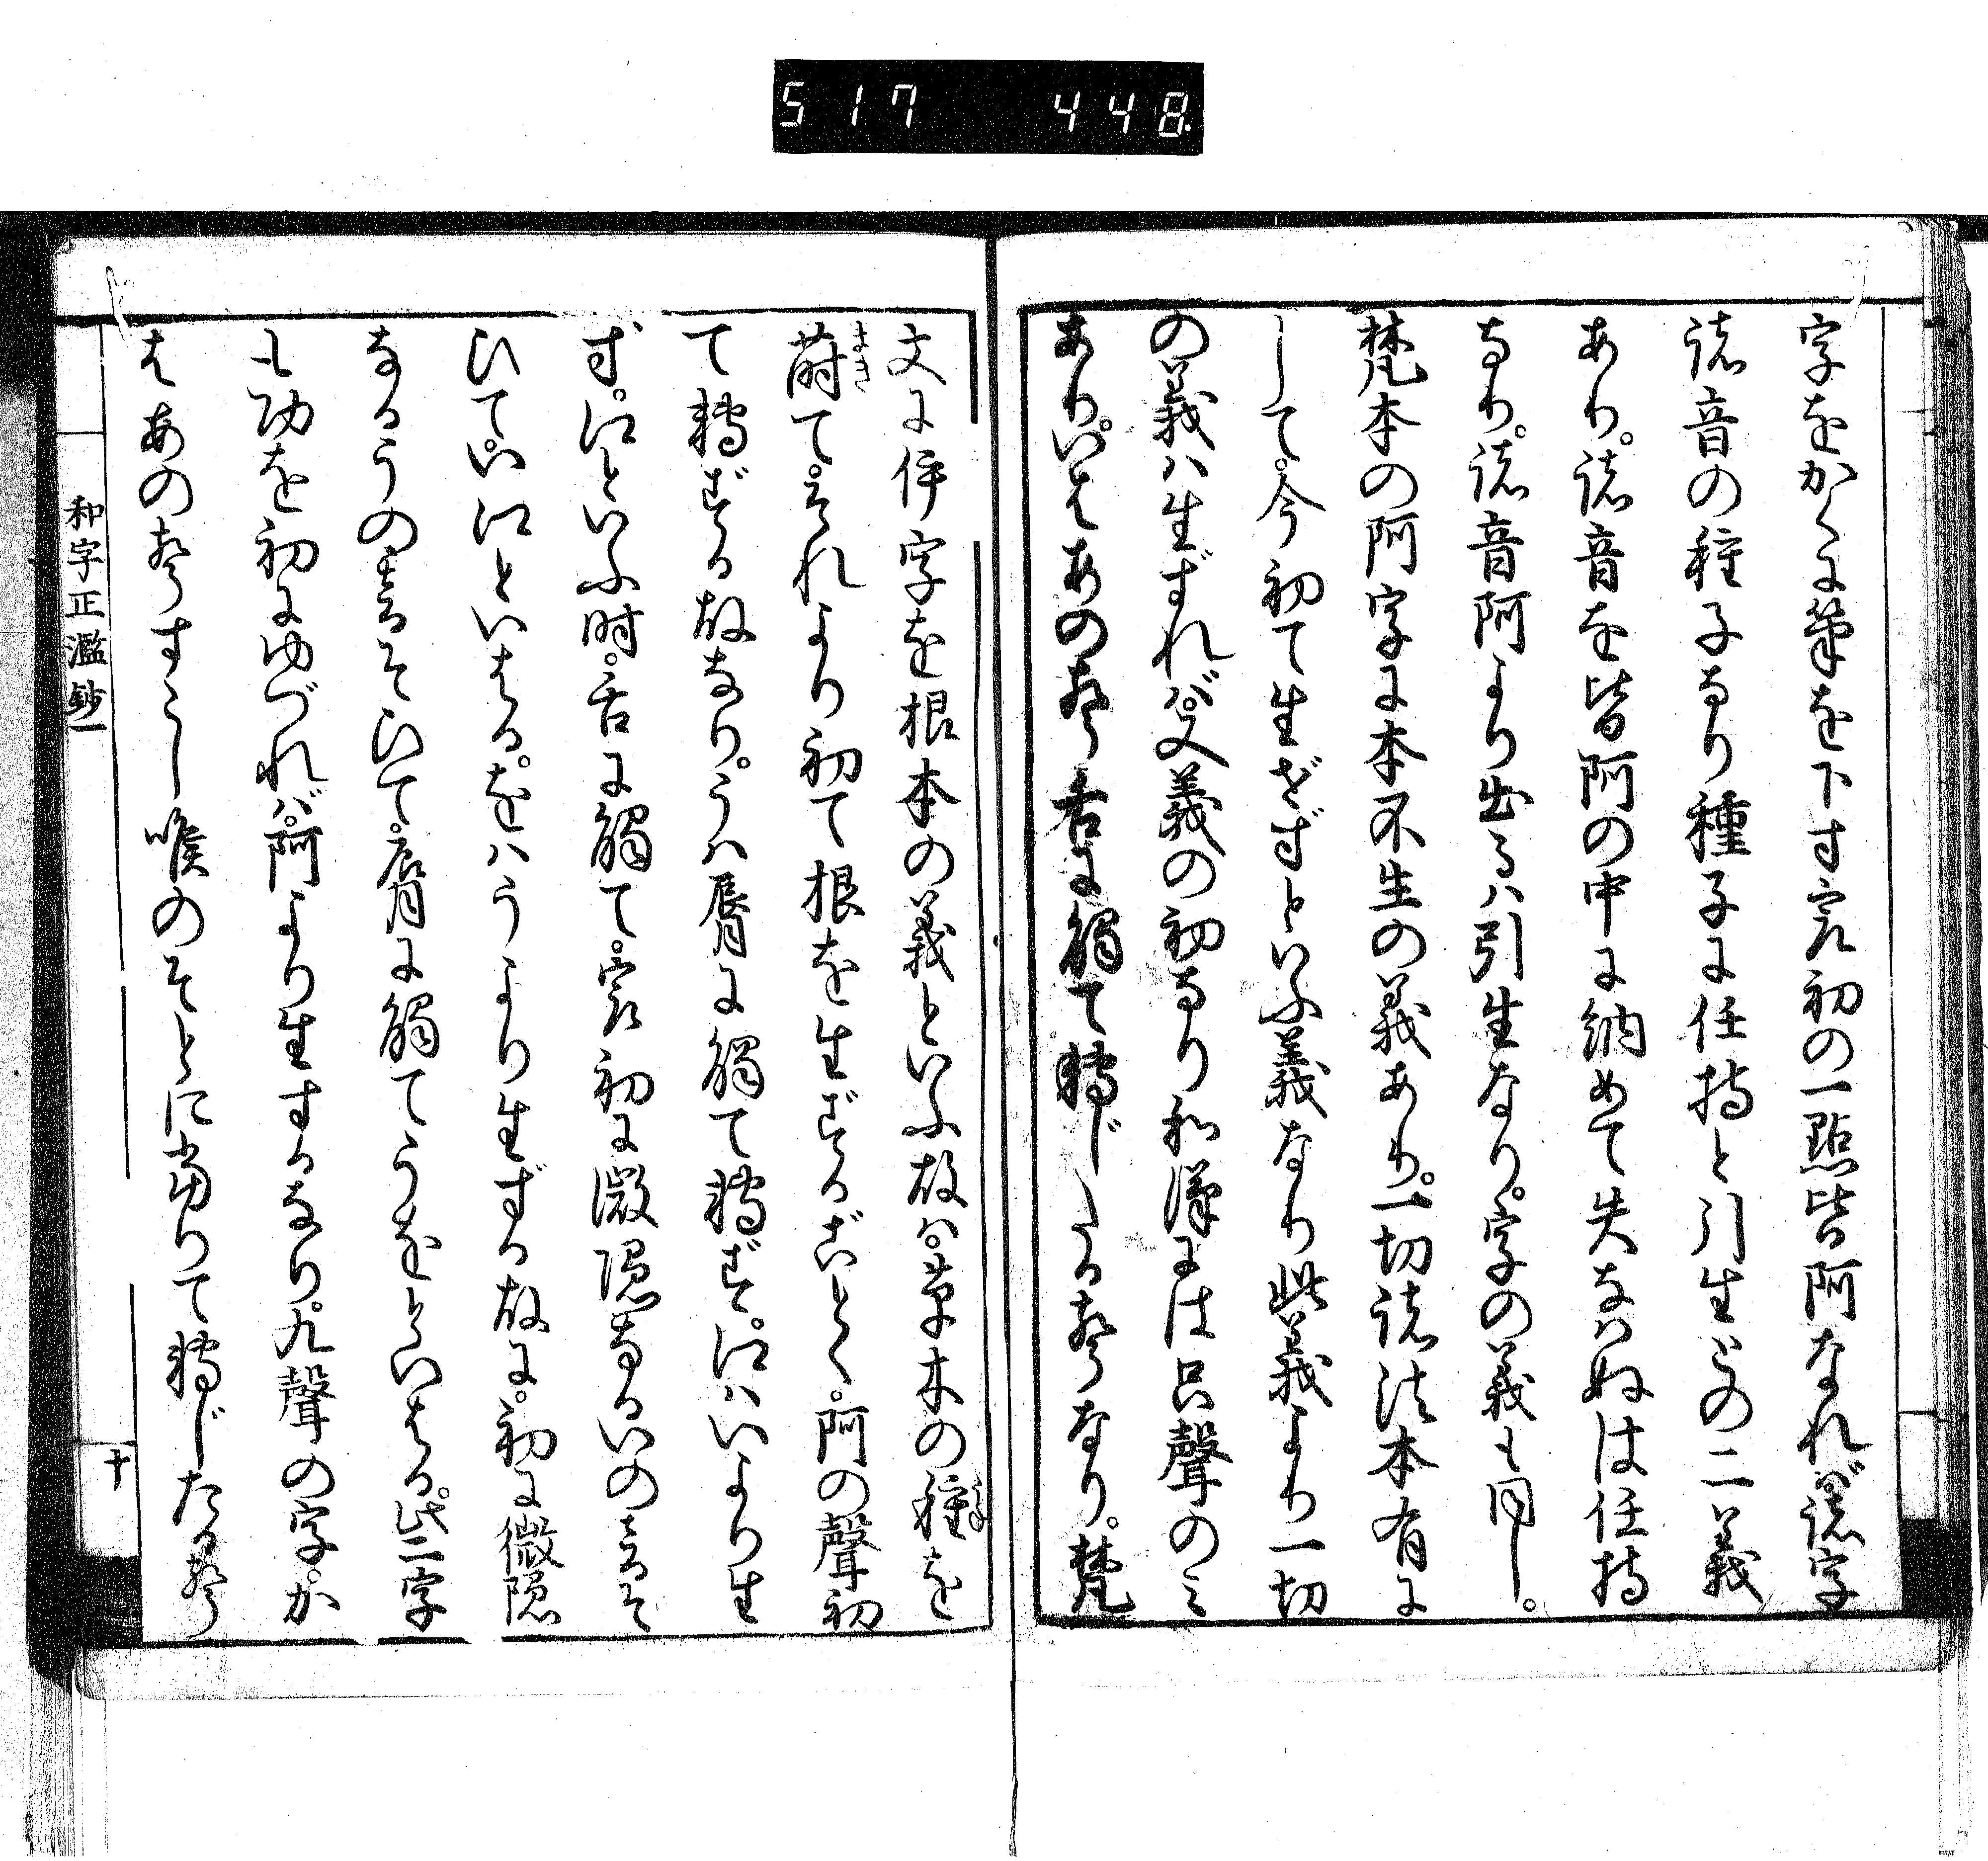 517 448
字をかくに筆を下す最初の一點皆阿なれば諸字
諸音の種子なり種子に任持と引生との二義
あり。諸音を皆阿の中に納めて失なはぬは任持
なり。諸音阿より出るは引生なり。字の義も同し。
梵本の阿字に本不生の義あり。一切諸法本有に
して。今初て生ぜずといふ義なり此義より一切
の義は生ずれば。又義の初なり和漢には只聲のみ
あり。いはあの聲舌に觸て轉じたる聲なり。梵
文に伊字を根本の義といふ故は。草木の種を
蒔て。それより初て根を生ずるごとく。阿の聲初
て轉ずる故なり。うは脣に觸て轉ず。江はいより生
ず。江といふ時。舌に觸て。最初に微隱なるいの音そ
ひて。い江といはる。をはうより生ずる故に。初に微隱
なるうの音そひて。脣に觸てうをといはる。此二字
も功を初にゆづれば。阿より生するなり。九聲の字。か
はあの聲すこし喉のそとに當りて轉じたる聲
和字正濫鈔一
十